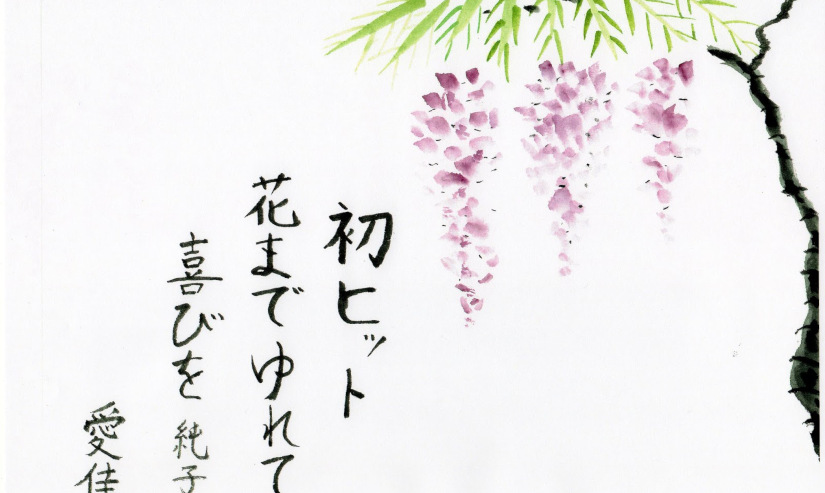 初ヒット
花までゆれて
喜びを 純子
愛佳